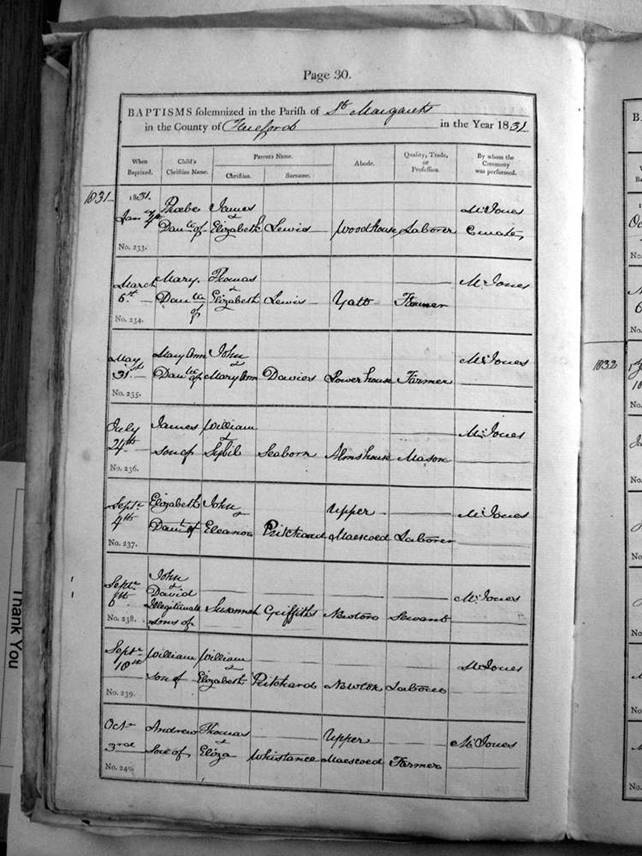 Page 30.
BAPTISMS solemnized in the Parish of St. Margarets
in the County of Hereford in the Year 1831
When Baptized. Child's Christian Name. Parents Name. Abode. Quality, Trade, or Profession. By whom the Ceremony was performed.
Christian. Surname.
1831 1831. Phoebe James Mr Jones
Jany Daur of & Elizabeth Lewis Woodhouse Laborer Curate
No. 233.
March Mary Thomas Mr Jones
6th Daur of & Elizabeth Lewis Yatt Farmer
No. 234.
May Mary Ann John Mr Jones
31st Daur of & Mary Ann Davies Lower house Farmer
No. 235.
July James William Mr Jones
24th son of & Sybil Seaborn Almshouse Mason
No. 236.
Septr Elizabeth John Upper Mr Jones
4th Daur of & Eleanor Pritchard Maescoed Laborer
No. 237.
Septr John & David Mr Jones
Illegitimate sons of Susannah Griffiths Servant
No. 238.
Septr William William Mr Jones
18th son of & Elizabeth Pritchard Newcot Laborer
No. 239.
Octr Andrew Thomas Upper Mr Jones
3rd Son of & Eliza Whistance Maescoed Farmer
No. 240.
Thank You
1832